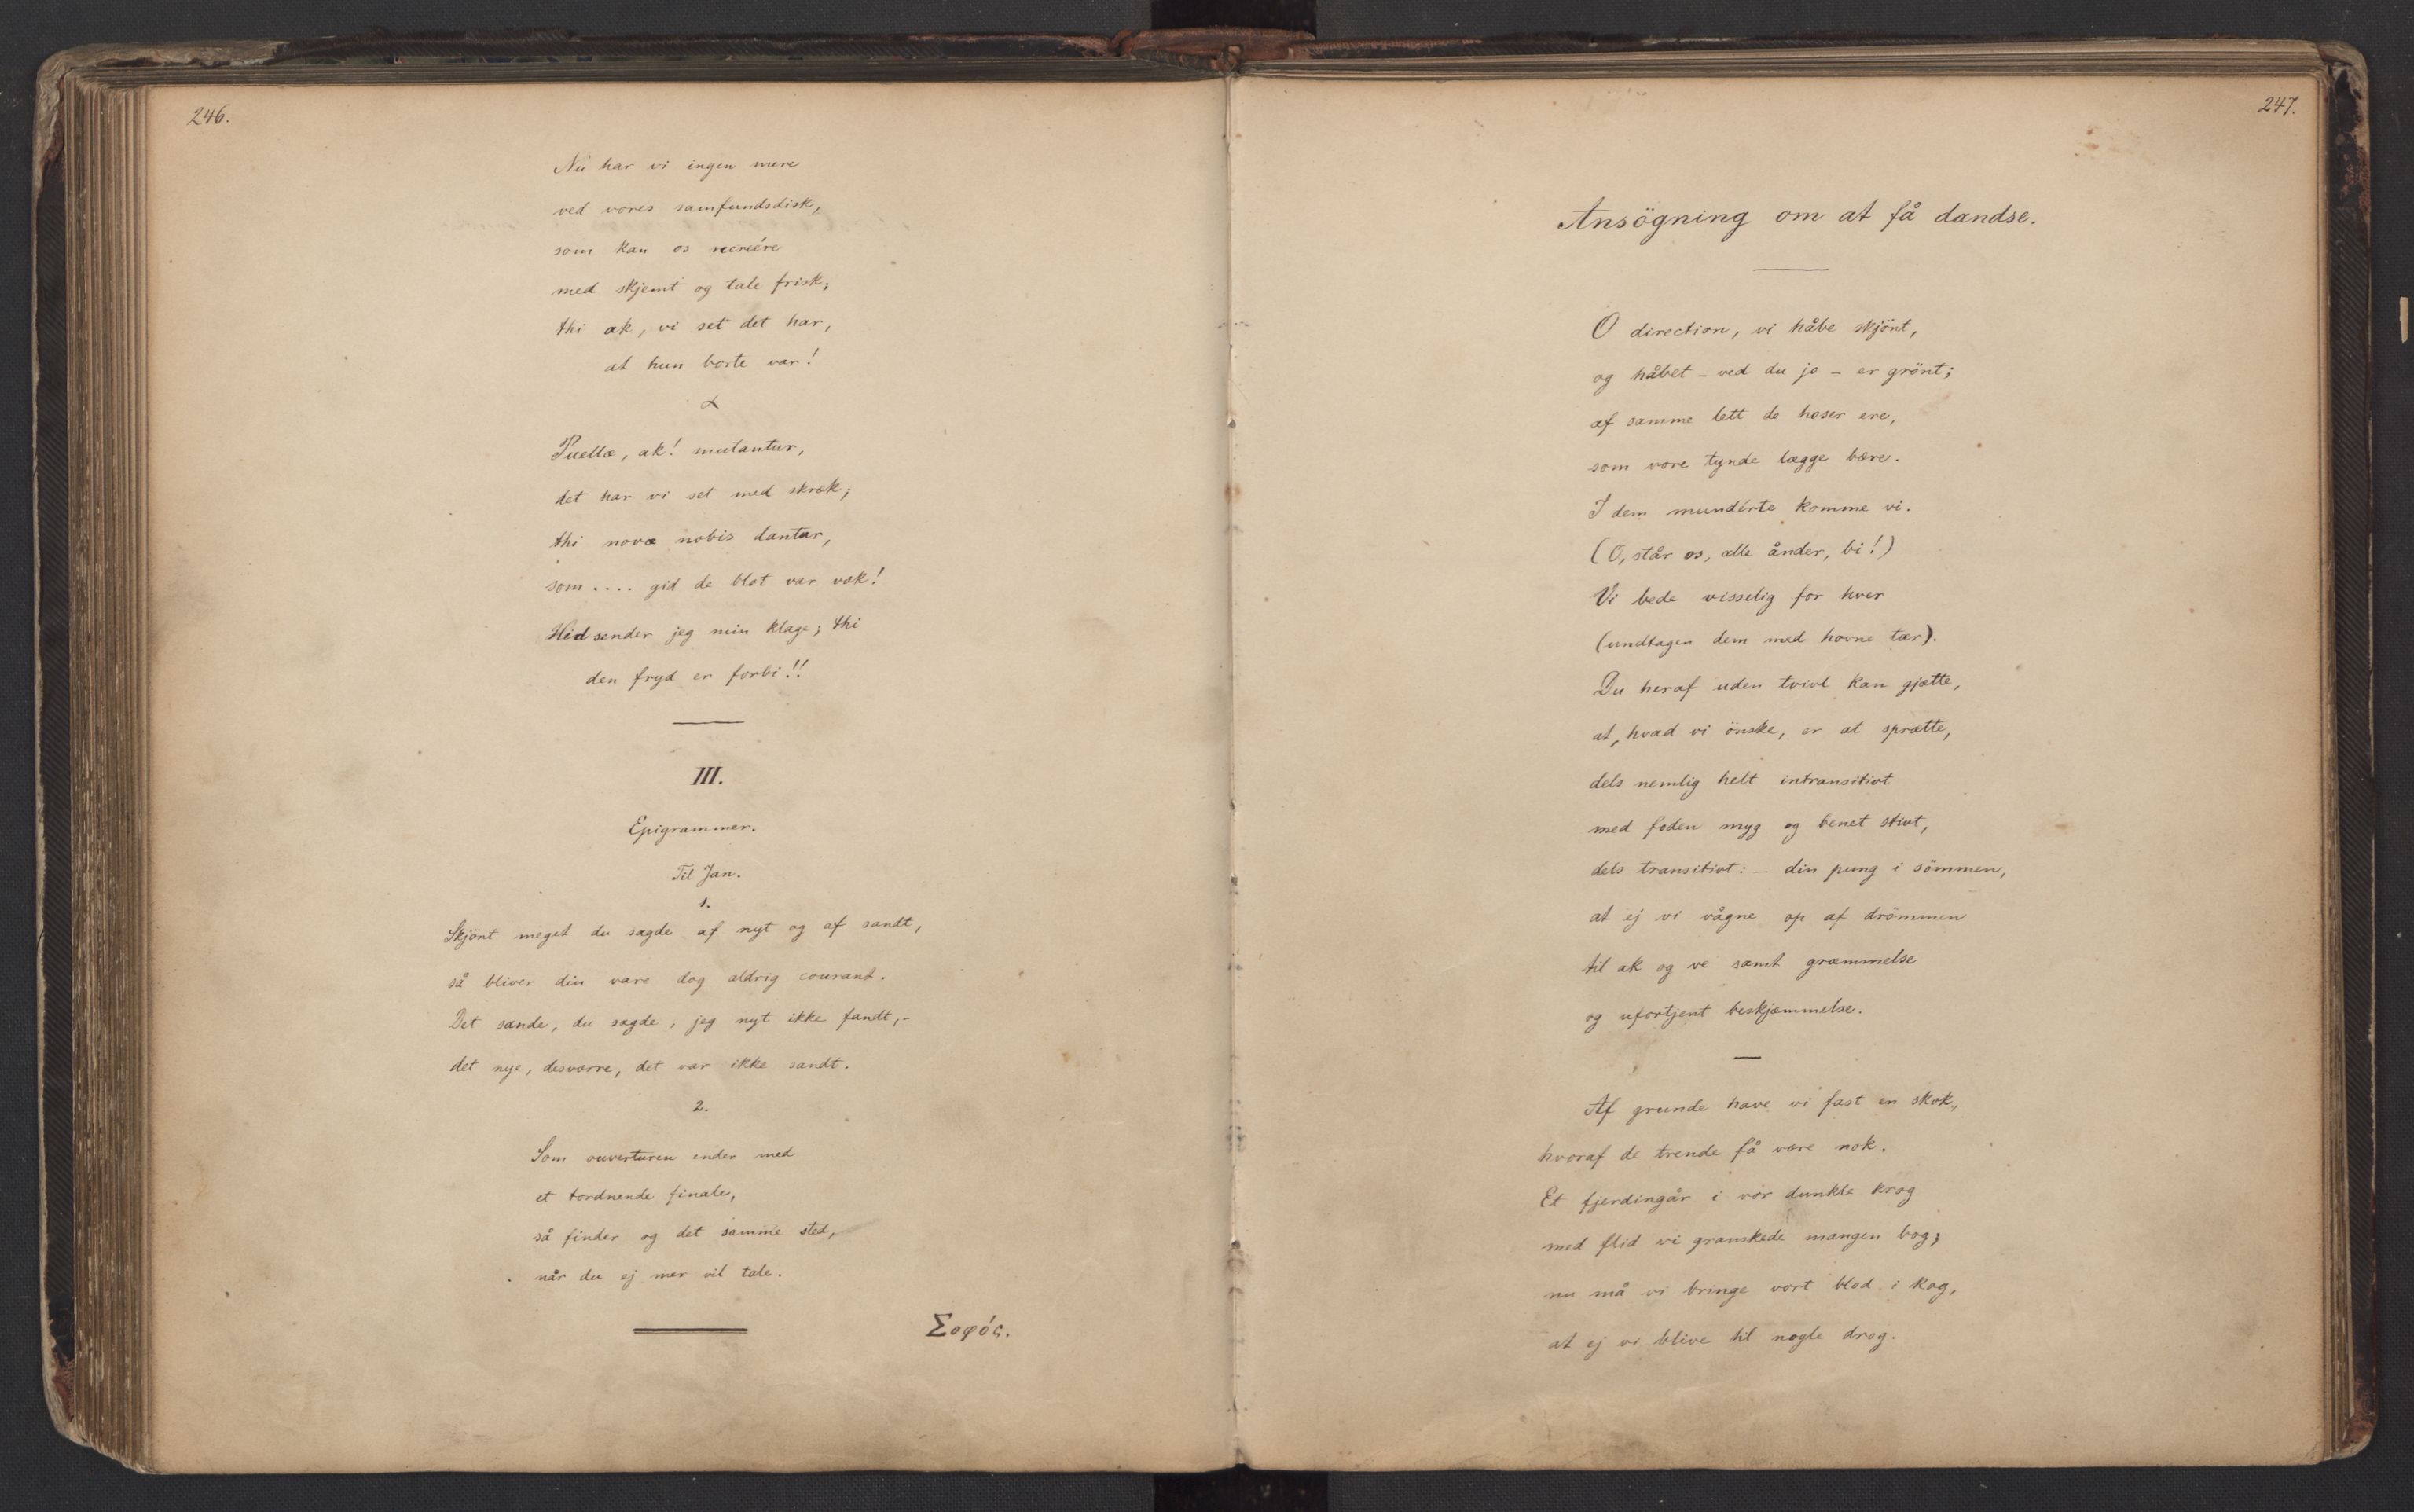 246.
Nu har vi ingen mere
ved vores samfundsdisk,
som kan os recreére
med skjemt og tale frisk;
thi ak, vi set det har,
at hun borte var!
Puellæ, ak! mutantur,
det har vi set med skræk;
thi novæ nobis dantur,
som.... gid de blot var væk!
Hid sender jeg min klage; thi
den fryd er forbi!!
III.
Epigrammer.
Til Jan.
1.
Skjönt meget du sagde af nyt og af sandt,
så bliver din vare dog aldrig courant.
Det sande, du sagde, jeg nyt ikke fandt,-
det nye, desværre, det var ikke sandt.
2.
Som ouverturen ender med
et tordnende finale,
så finder og det samme sted,
når du ej mer vil tale.
Σοφός.
247.
Ansögning om at få dandse.
O direction, vi håbe skjönt,
og håbet – ved du jo – er grönt;
af samme lett de hoser ere,
som vore tynde lægge bære.
I dem mundérte komme vi.
(O, står os, alle ånder, bi!)
Vi bede visselig for hver
(undtagen dem med hovne tær).
Du heraf uden tvivl kan gjætte,
at, hvad vi önske, er at sprætte,
dels nemlig helt intransitivt
med foden myg og benet stivt,
dels transitivt: – din pung i sömmen,
at ej vi vågne op af drömmen
til ak og ve samt græmmelse
og ufortjent beskjæmmelse.
Af grunde have vi fast en skok,
hvoraf de trende få være nok.
Et fjerdingår i vor dunkle krog
med flid vi granskede mangen bog;
nu må vi bringe vort blod i kog,
at ej vi blive til nogle drog.